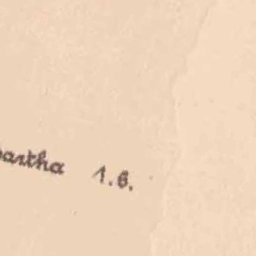 artha 1.6.